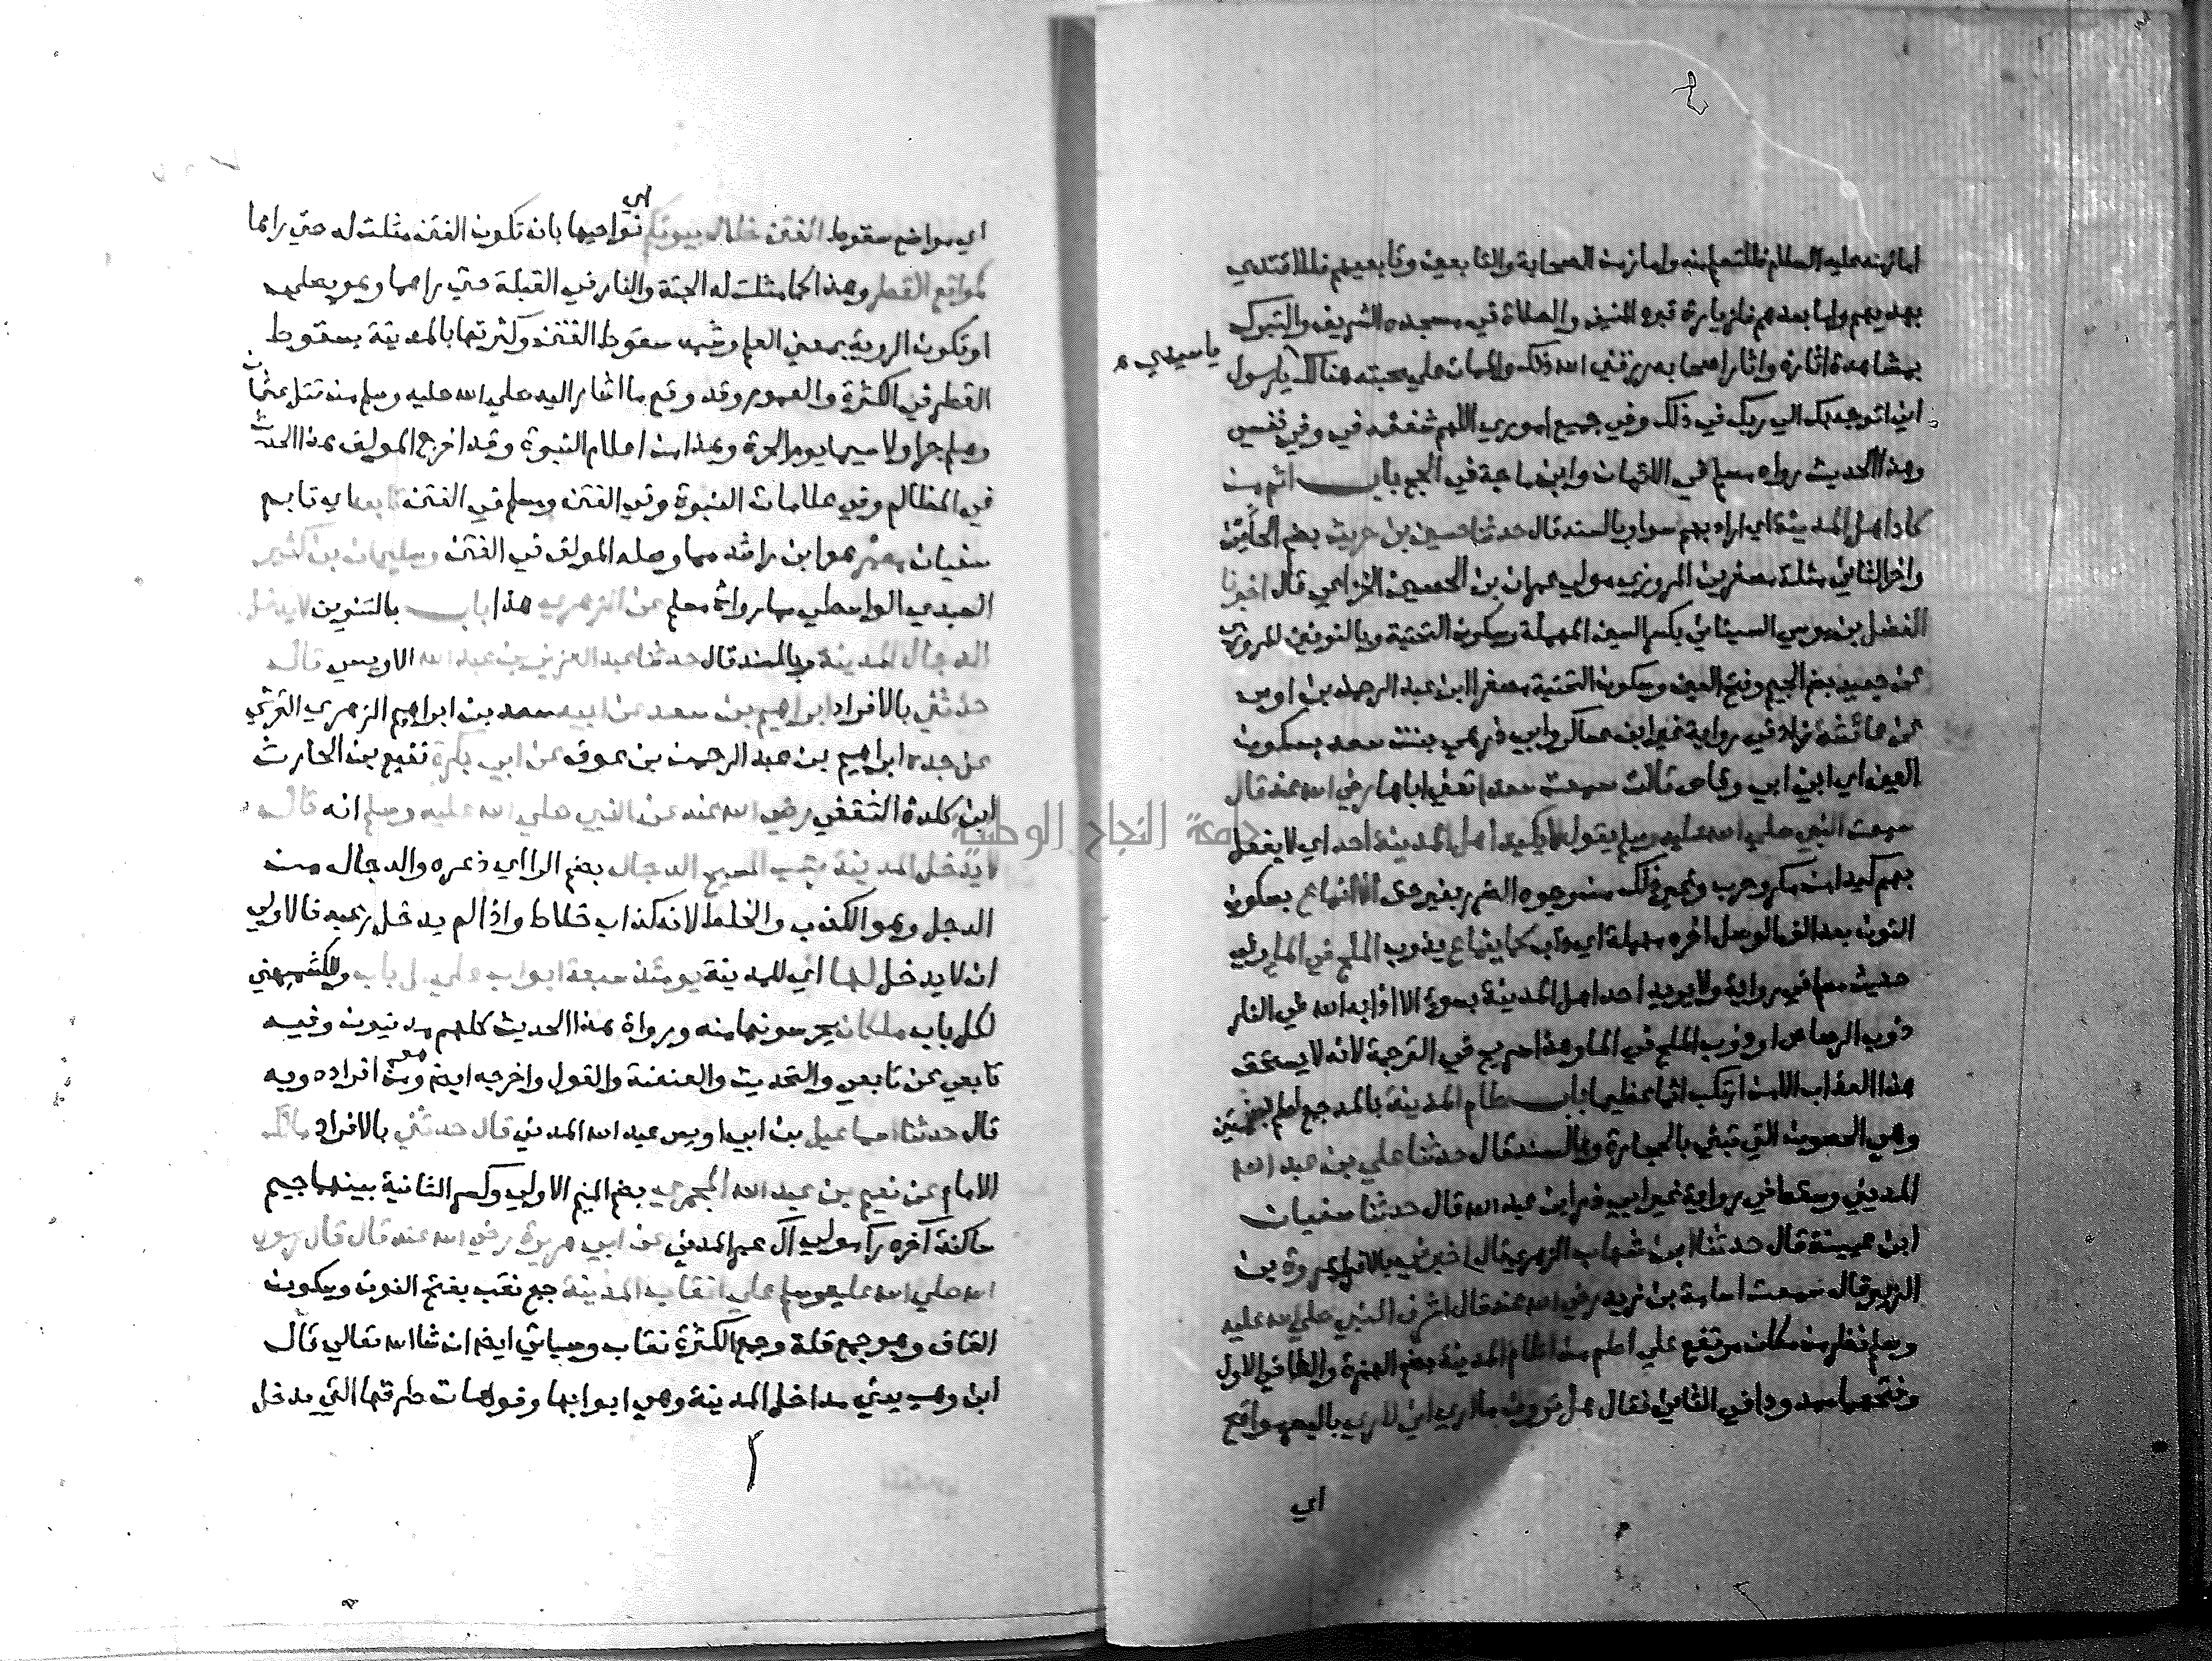 اما زمنه عليه السلام فللتعلم منه واما زمن الصحابة والتابعين وتابعيهم فللاقتدي
بهديهم واما بعدهم فلزيارة قبره المنيف والصلاة في مسجده الشريف والتبرك
بمشاهدة اثاره واثار اصحابه رزقني الله ذلك والممات علي محبته هناك يا رسول
يا سيدي
اني اتوجه بك الي ربك في ذلك وفي جميع اموري اللهم شفعه في وفي نفسي
وهذا الحديث رواه مسلم في الايمان وابن ماجة في الحج باب اثم من
كاد اهل المدينة اي اراد بهم سوا وبالسند قال حدثنا حسين بن حريث بضم الحا
واخر الثاني مثلثة مصغرين المروزي مولي عمران بن الحصين الخزاعي قال اخبرنا
الفضل بن موسي السيناني بكسر السين المهملة وسكون التحتية وبالنونين المروزي
عن جعيد بضم الجيم وفتح العين وسكون التحتية مصغرا ابن عبد الرحمن بن اوس
عن عائشة زاد في رواية غير ابن عساكر وابي ذر هي بنت سعد بسكون
العين اي ابن ابي وقاص قالت سمعت سعدا تعني اباها رضي الله عنه قال
سمعت النبي صلي الله عليه وسلم يقول لا يكيد اهل المدينة احد اي لا يفعل
بهم كيدا من مكر وحرب وغير ذلك من وجوه الضرر بغير حق الا انماع بسكون
النون بعد الف الوصل اخره مهملة اي ذاب كما ينماع يذوب الملح في الما وفي
حديث مسلم في رواية ولا يريد احد اهل المدينة بسوء الا اذابه الله في النار
ذوب الرصاص او ذوب الملح في الما وهذا صريح في الترجمة لانه لا يستحق
هذا العذاب الا من ارتكب اثما عظيما باب اطام المدينة بالمد جمع اطم بضمتين
وهي الحصون التي تبني بالحجارة وبالسند قال حدثنا علي بن عبد الله
المديني وسقط في رواية غير ابي ذر ابن عبد الله قال حدثنا سفيان
ابن عيينة قال حدثنا ابن شهاب الزهري قال اخبرني بالافراد عروة بن
الزبير قال سمعت اسامة بن زيد رضي الله عنه قال اشرف النبي صلي الله عليه
وسلم نظر من مكان مرتفع علي اطم من اطام المدينة بضم الهمزة والطا في الاول
وفتحهما ممدودا في الثاني فقال هل ترون ما اري اني لاري بالبصر مواقع
اي
اي مواضع سقوط الفتن خلال بيوتكم نواحيها بان تكون الفتن مثلت له حتي راها
كمواقع القطر وهذا كما مثلت له الجنة والنار في القبلة حتي راهما وهو يصلي
او تكون الروية بمعني العلم وشبه سقوط الفتن وكثرتها بالمدينة بسقوط
القطر في الكثرة والعموم وقد وقع ما اشار اليه صلي الله عليه وسلم من قتل عثمان
وهلم جرا ولا سيما يوم الحرة وهذا من اعلام النبوة وقد اخرج المولف هذا الحديث
في المظالم وفي علامات النبوة وفي الفتن ومسلم في الفتن تابعه اي تابع
سفيان معمر هو ابن راشد مما وصله المولف في الفتن وسليمان بن كثير
العبدي الواسطي مما رواه مسلم عن الزهري هذا باب بالتنوين لا يدخل
الدجال المدينة وبالسند قال حدثنا عبد العزيز بن عبد الله الاويسي قال
حدثني بالافراد ابراهيم بن سعد عن ابيه سعد بن ابراهيم الزهري القرشي
عن جده ابراهيم بن عبد الرحمن بن عوف عن ابي بكرة نفيع بن الحارث
ابن كلدة الثقفي رضي الله عنه عن النبي صلي الله عليه وسلم انه قال
لا يدخل المدينة رعب المسيح الدجال بضم الرا اي ذعره والدجال من
الدجل وهو الكذب والخلط لانه كذاب خلاط واذا لم يدخل رعبه فالاولي
ان لا يدخل لها اي للمدينة يومئذ سبعة ابواب علي كل باب وللكشميهني
لكل باب ملكان يحرسونها منه ورواة هذا الحديث كلهم مدنيون وفيه
تابعي عن تابعي والتحديث والعنعنة والقول واخرجه ايضا وهو من افراده وبه
قال حدثنا اسماعيل بن ابي اويس عبد الله المدني قال حدثني بالافراد مالك
الامام عن نعيم بن عبد الله المجمر بضم الميم الاولي وكسر الثانية بينهما جيم
ساكنة اخره را مولي ال عمر المدني عن ابي هريرة رضي الله عنه قال قال رسول
الله صلي الله عليه وسلم علي انقاب المدينة جمع نقب بفتح النون وسكون
القاف وهو جمع قلة وجمع الكثرة نقاب وسياتي ايضا ان شا الله تعالي قال
ابن وهب يعني مداخل المدينة وهي ابوابها وفوهات طرقها التي يدخل
جامعة النجاح الوطنية